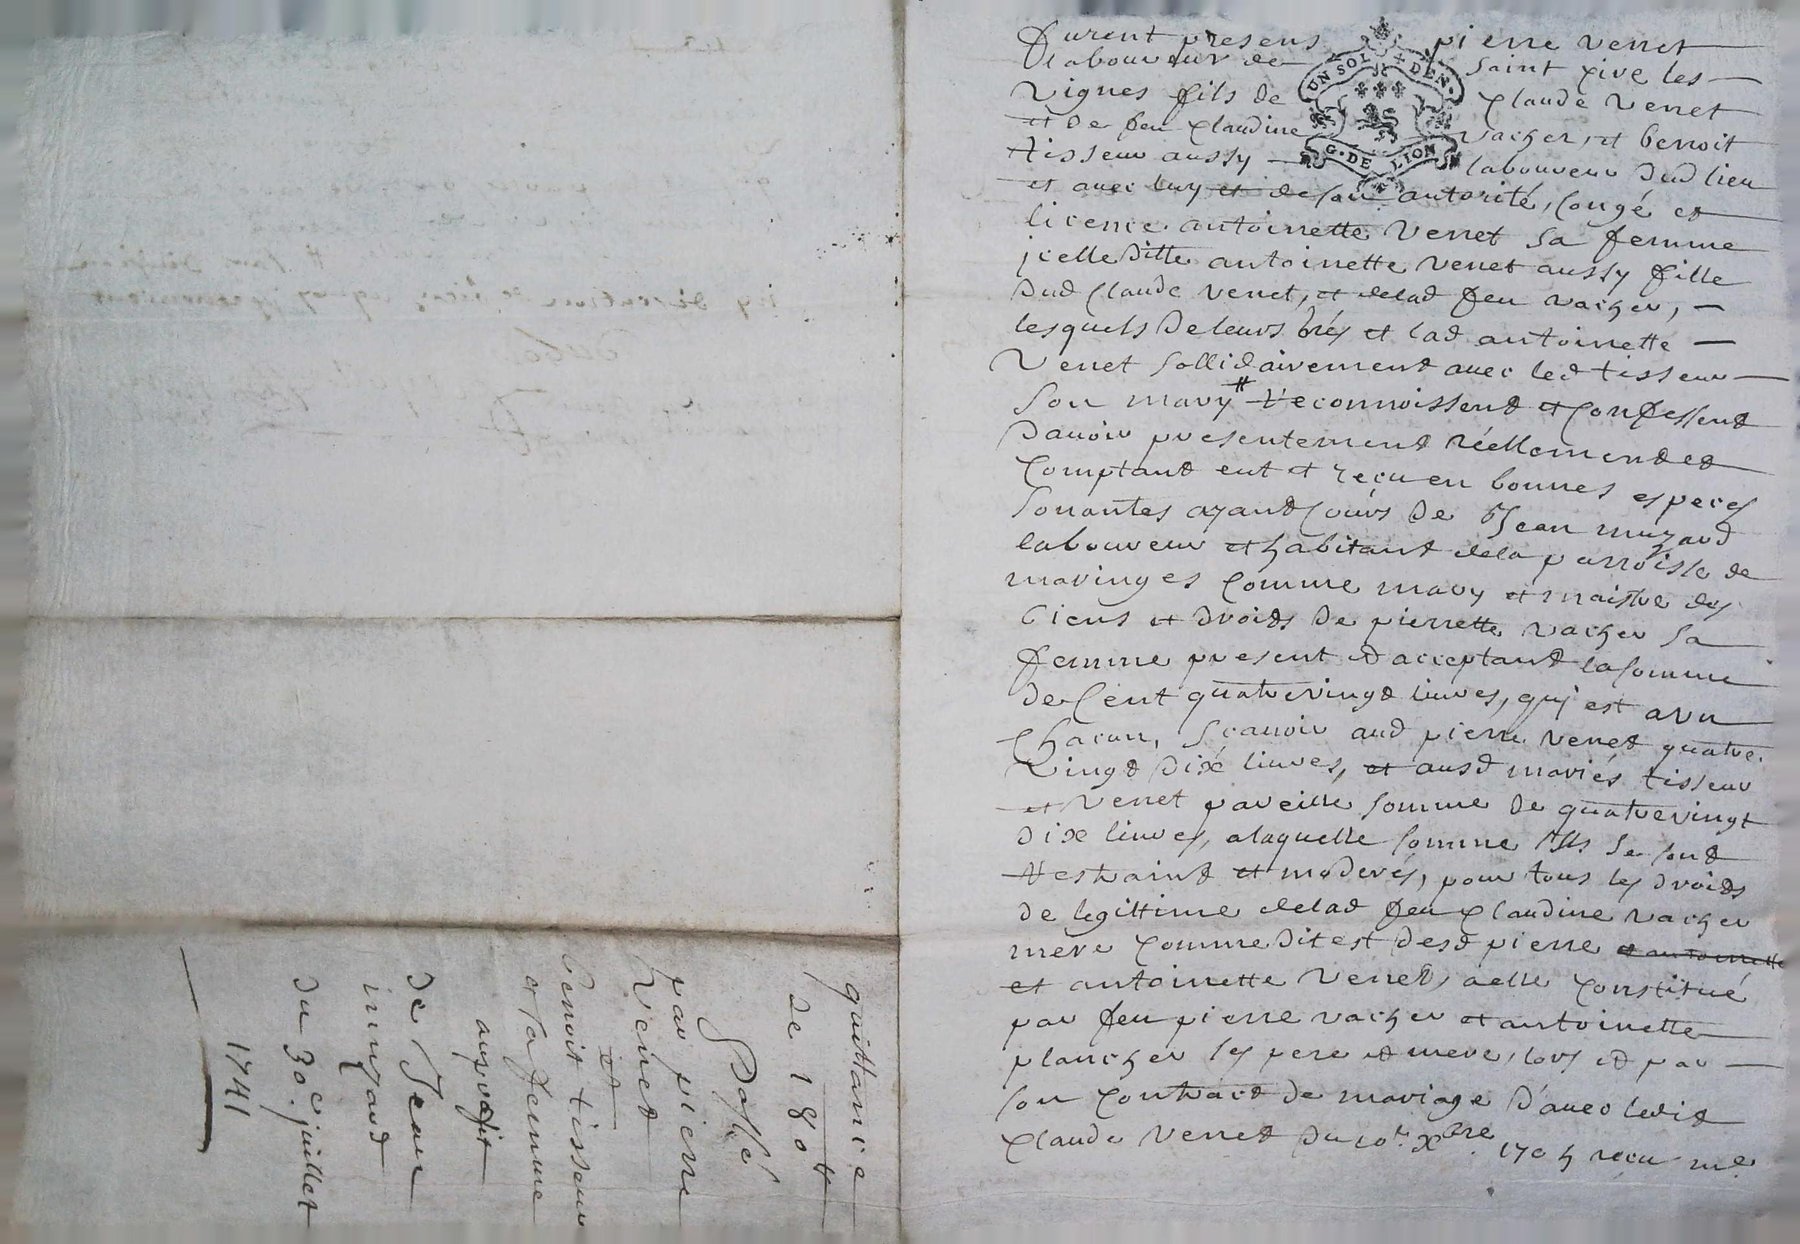 furent presens pierre venet
laboureur de saint cire les
vignes fils de claude venet
et de feu claudine vacher, et benoit
tisseur aussy laboureur dud lieu
et avec luy et de son autorité, congé et
licence antoinette venet sa femme
icelle ditte antoinette venet aussy fille
dud claude venet, et delad feu vacher,
lesquels de leurs grés et lad antoinette
venet sollidairement avec led tisseur
son mary # reconnoissent et confessent
d'avoir presentement réellement et
comptant eut et reçu en bonnes especes
sonantes ayant cours de Jean muzard
laboureur et habitant dela parroisse de
maringes comme mary et maistre des
biens et droids de pierrette vacher sa
femme present et acceptant la somme
de cent quatrevingt livres, qui est a un
chacun, scavoir aud pierre venet quatre
vingt dix livres, et ausd mariés tisseur
et venet pareille somme de quatrevingt
dix livres, a laquelle somme ils se sont
restraint et moderés, pour tous les droids
de legittime delad feu claudine vacher
mere comme dit est desd pierre et antoinette
et antoinette venet, a elle constitué
par feu pierre vacher et antoinette
plancher ses pere et mere, lors et par
son contract de mariage d'avec ledit
claude venet du 10e xbre 170 reçu me
UN SOL 4 DEN.
G. DE LION
quittance
de 180 ll
passé
par pierre
venet
et
benoit tisseur
et sa femme
au profit
de Jean
muzard
du 30e juillet
1741